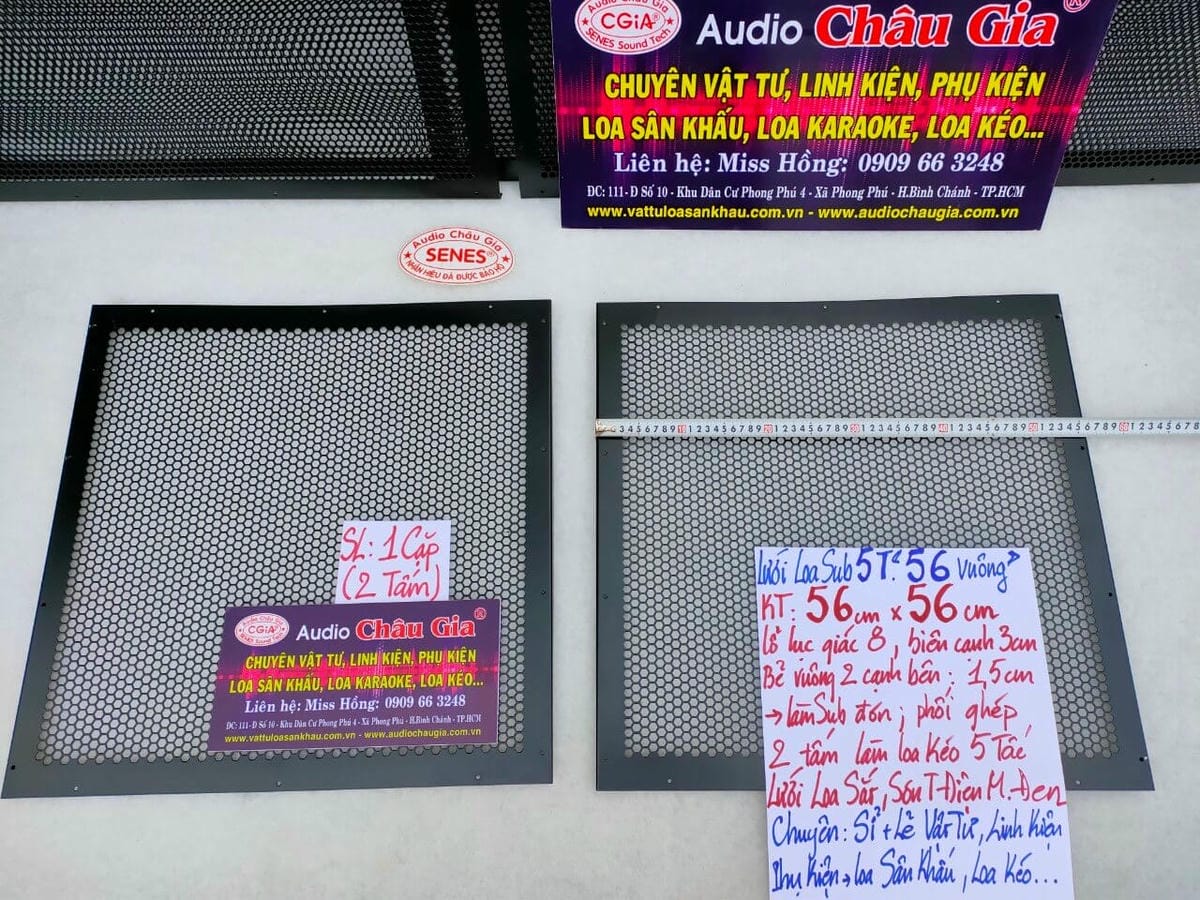 Audio Châu Gia
CGiA®
SENES Sound Tech
Audio Châu Gia ®
CHUYÊN VẬT TƯ, LINH KIỆN, PHỤ KIỆN
LOA SÂN KHẤU, LOA KARAOKE, LOA KÉO...
Liên hệ: Miss Hồng: 0909 66 3248
ĐC: 111- D Số 10 - Khu Dân Cư Phong Phú 4 - Xã Phong Phú - H.Bình Chánh - TP.HCM
www.vattuloasankhau.com.vn - www.audiochaugia.com.vn
Audio Châu Gia
SENES®
NHÃN HIỆU ĐÃ ĐƯỢC BẢO HỘ
3 4 5 6 7 8 9 10 1 2 3 4 5 6 7 8 9 20 1 2 3 4 5 6 7 8 9 30 1 2 3 4 5 6 7 8 9 40 1 2 3 4 5 6 7 8 9 50 1 2 3 4 5 6 7 8 9 60 1 2 3 4 5 6 7 8
SL: 1 Cặp
(2 Tấm)
CGiA®
Audio Châu Gia ®
CHUYÊN VẬT TƯ, LINH KIỆN, PHỤ KIỆN
LOA SÂN KHẤU, LOA KARAOKE, LOA KÉO...
Liên hệ: Miss Hồng: 0909 66 3248
ĐC: 111- D Số 10 - Khu Dân Cư Phong Phú 4 - Xã Phong Phú - H.Bình Chánh - TP.HCM
www.vattuloasankhau.com.vn - www.audiochaugia.com.vn
Lưới Loa Sub 5T: "56 Vuông"
KT: 56cm x 56cm
Lỗ lục giác 8, biên cạnh 3cm
Bẻ vuông 2 cạnh bên: 1,5cm
→ làm Sub đơn; phối ghép
2 tấm làm loa Kéo 5 Tấc
Lưới Loa Sắt, Sơn T-Điện M.Đen
Chuyên: Sỉ + Lẻ Vật Tư, Linh Kiện
Phụ Kiện → Loa Sân Khấu, Loa Kéo...